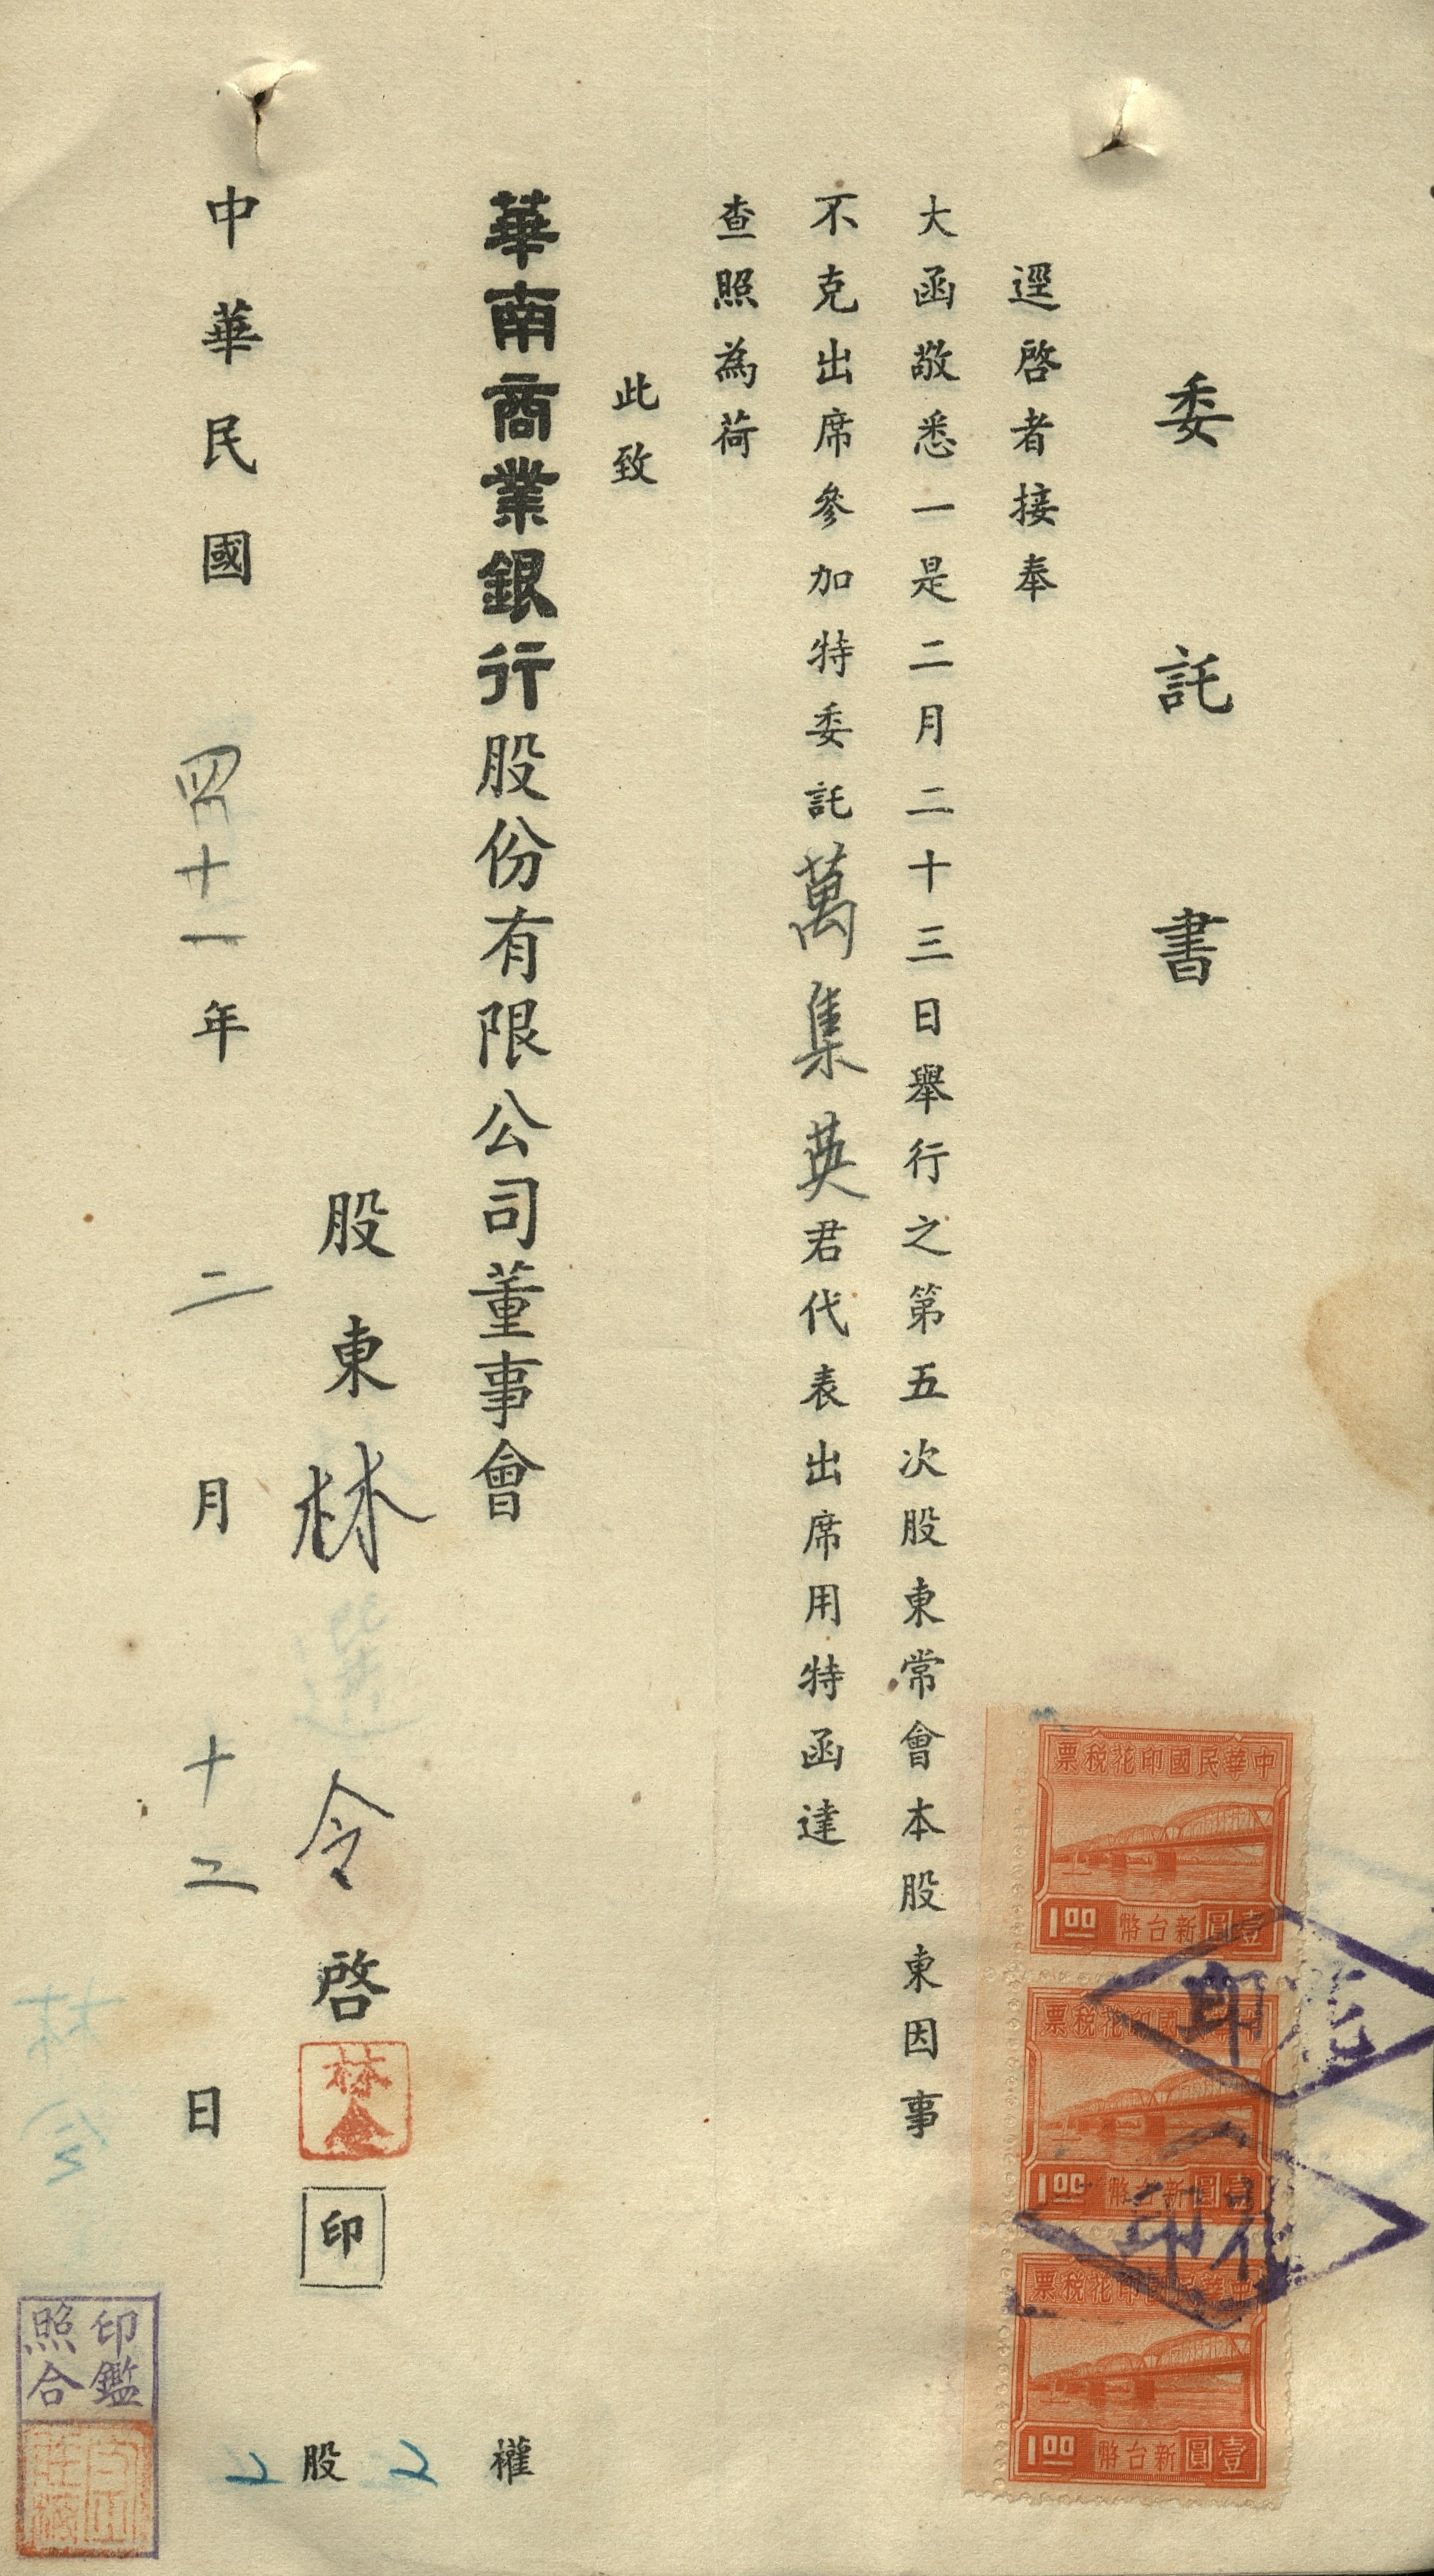 委託書
逕啓者接奉
大函敬悉一是二月二十三日舉行之第五次股東常會本股東因事
不克出席參加特委託萬集英君代表出席用特函達
查照為荷
此致
華南商業銀行股份有限公司董事會
股東林 令啓
林令
印
中華民國四十一年二月十二日
權2股2
林令
印鑑
照合
中華民國印花稅票
壹圓新台幣1.00
中華民國印花稅票
壹圓新台幣1.00
中華民國印花稅票
壹圓新台幣1.00
花印
花印